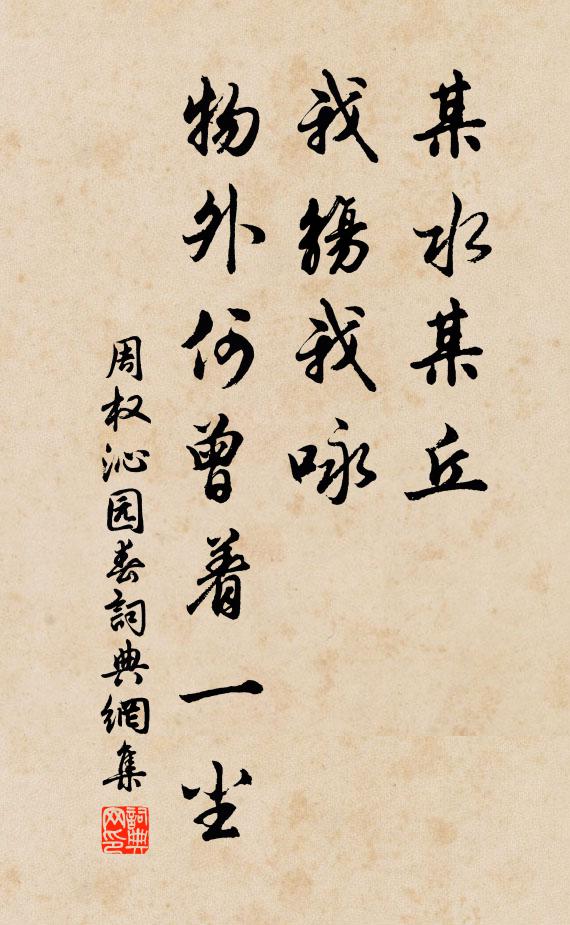 某水某丘
我觴我咏
物外何曾着一尘
周权沁园春詞典網集
詞典网印